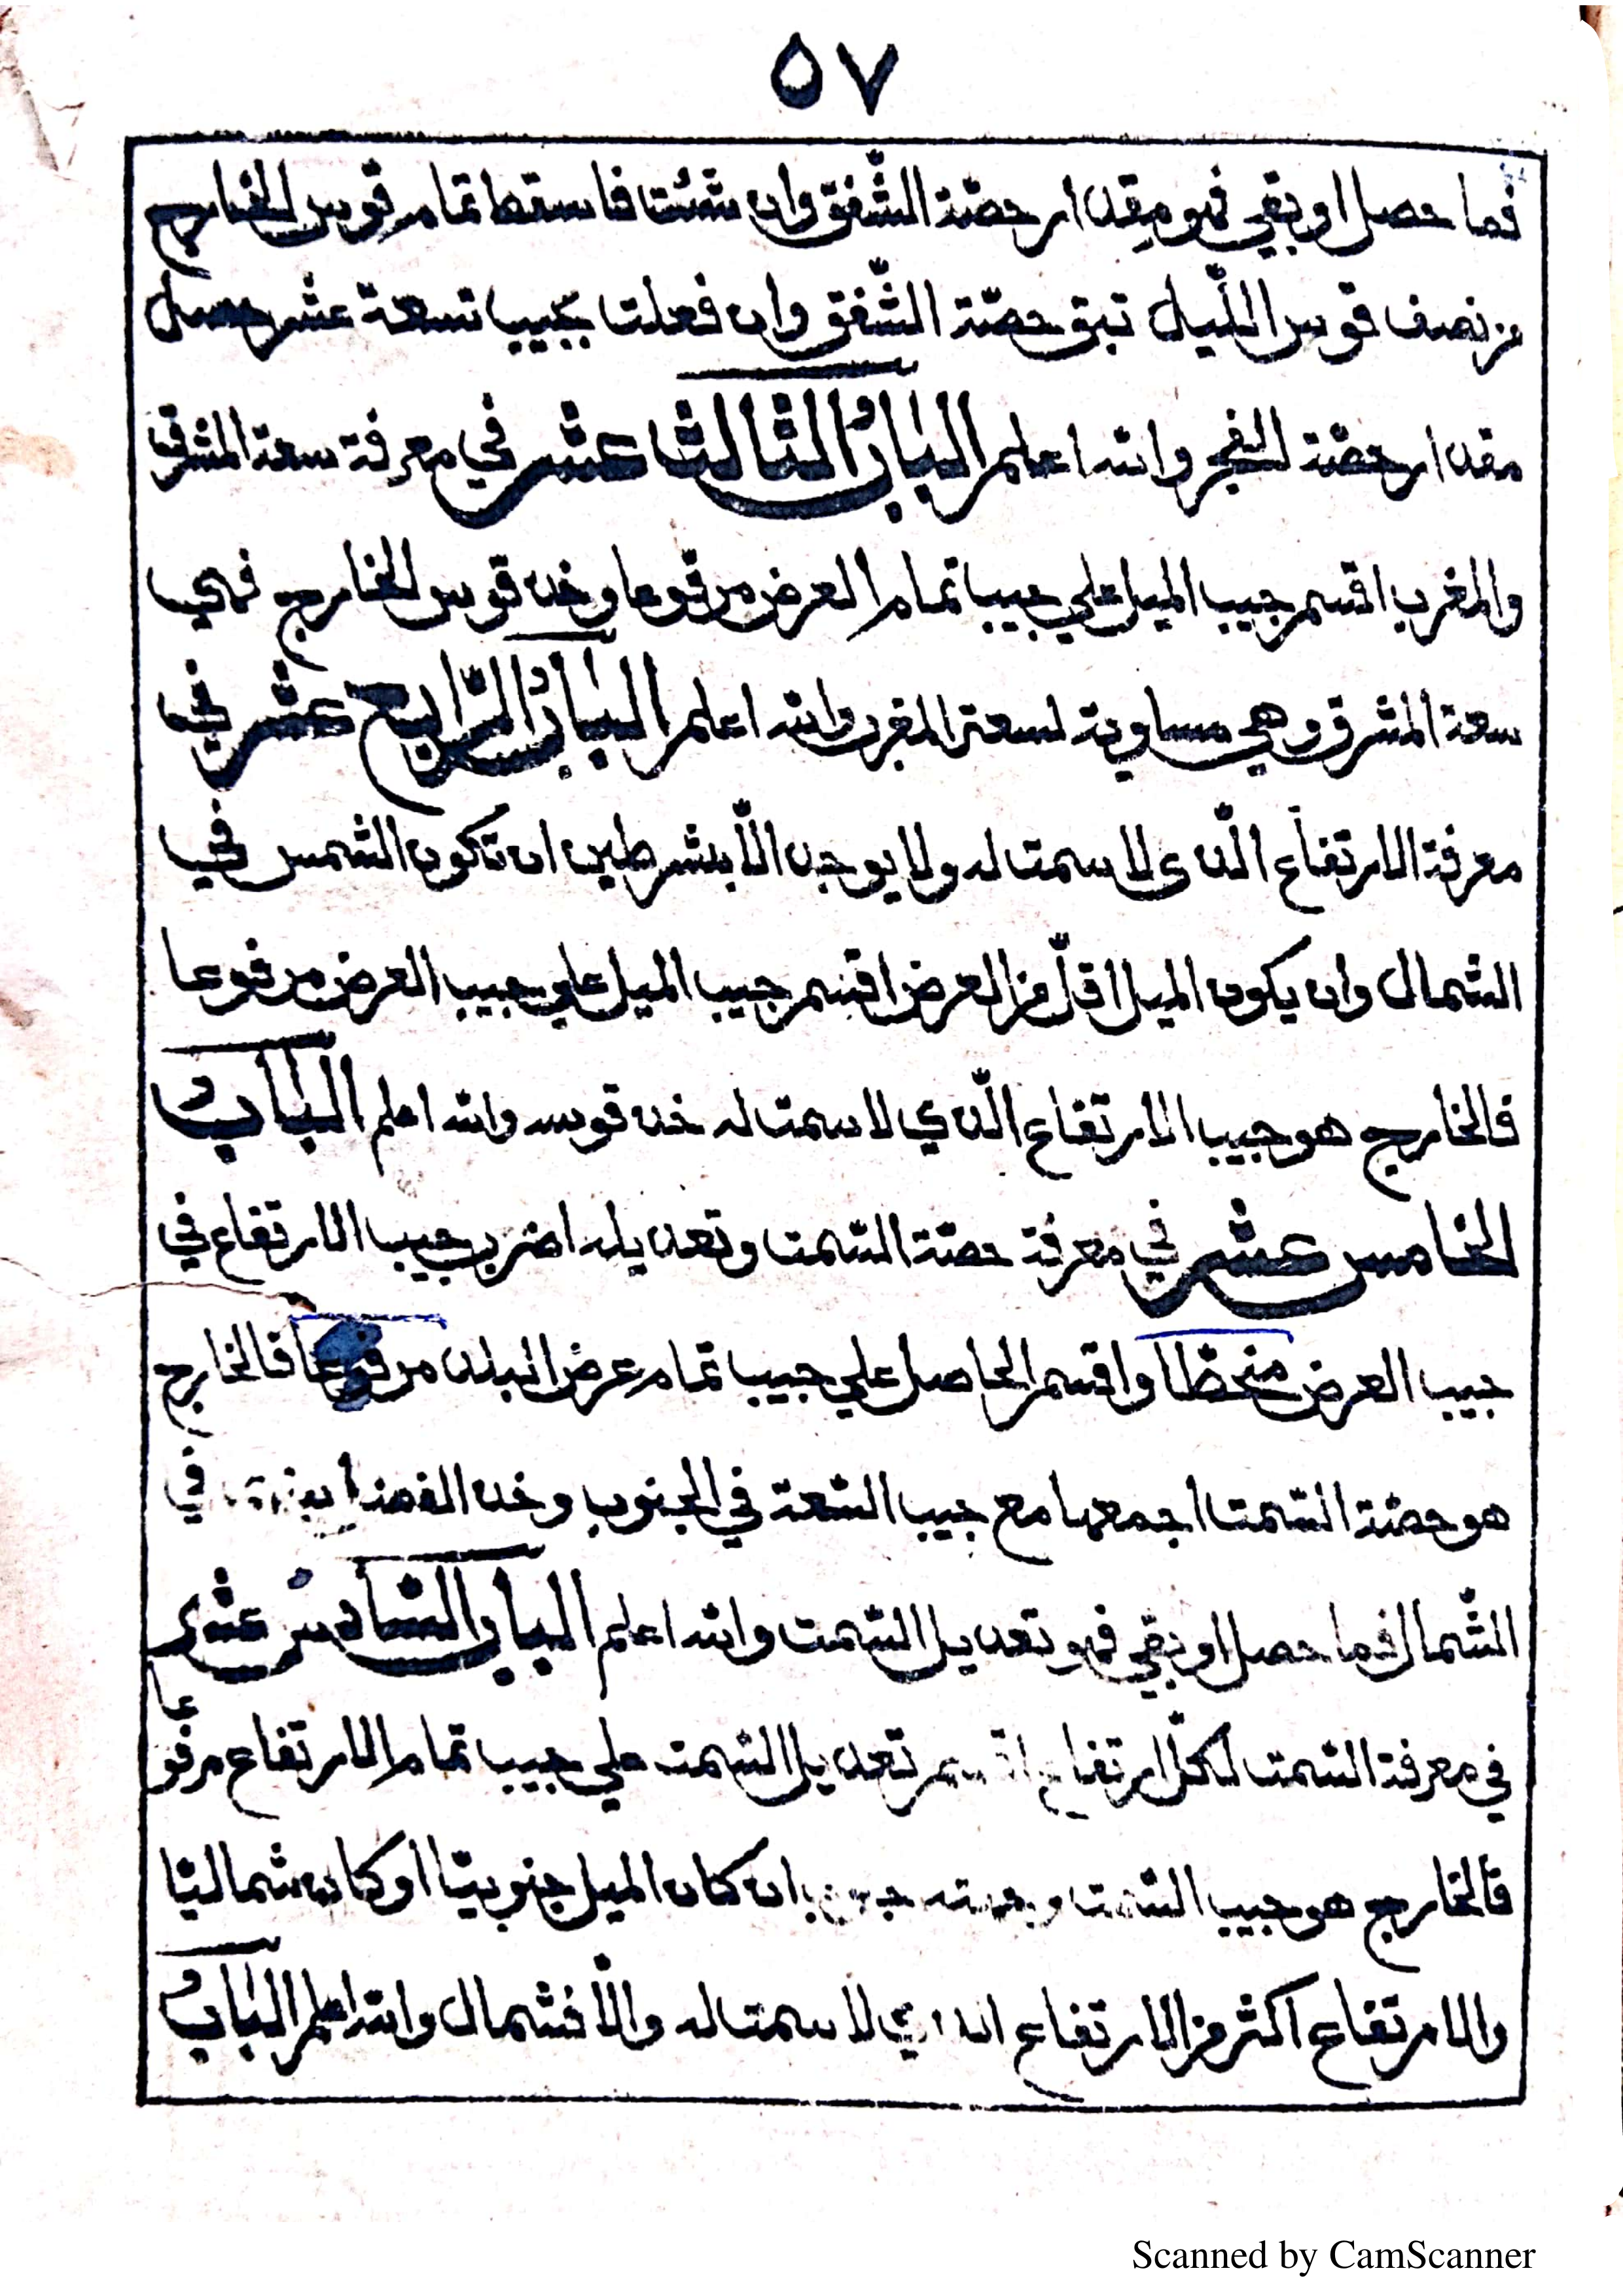 ٥٧
فما حصل او بقي فهو مقدار حصّة الشّفق وان شئت فاسقط تمام قوس الخارج
من نصف قوس اللّيل تبق حصّة الشّفق وان فعلت بجيب تسعة عشر حصل
مقدار حصّة الفجر والله اعلم البابُ الثالث عشر في معرفة سعة المشرق
والمغرب اقسم جيب الميل علي جيب تمام العرض مرفوعا وخذ قوس الخارج فهي
سعة المشرق وهي مساوية لسعة المغرب والله اعلم البابُ الرّابع عشر في
معرفة الارتفاع الّذى لا سمت له ولا يوجد الّا بشرطين ان تكون الشمس في
الشمال وان يكون الميل اقلّ من العرض اقسم جيب الميل علي جيب العرض مرفوعا
فالخارج هو جيب الارتفاع الّذي لا سمت له خذ قوسه والله اعلم البابُ
الخامس عشر في معرفة حصّة السّمت وتعديله اضرب جيب الارتفاع في
جيب العرض منحطّا واقسم الحاصل علي جيب تمام عرض البلد مرفوعا فالخارج
هو حصّة السّمت اجمعها مع جيب السّعة في الجنوب وخذ الفضل بينهما في
الشّمال فما حصل او بقي فهو تعديل السّمت والله اعلم الباب السّادس عشر
في معرفة السّمت لكلّ ارتفاع اقسم تعديل السّمت علي جيب تمام الارتفاع مرفوعا
فالخارج هو جيب السّمت وجهته جنوب ان كان الميل جنوبيّا او كان شماليّا
والارتفاع اكثر من الارتفاع الذي لا سمت له والّا فشمال والله اعلم البابُ
Scanned by CamScanner